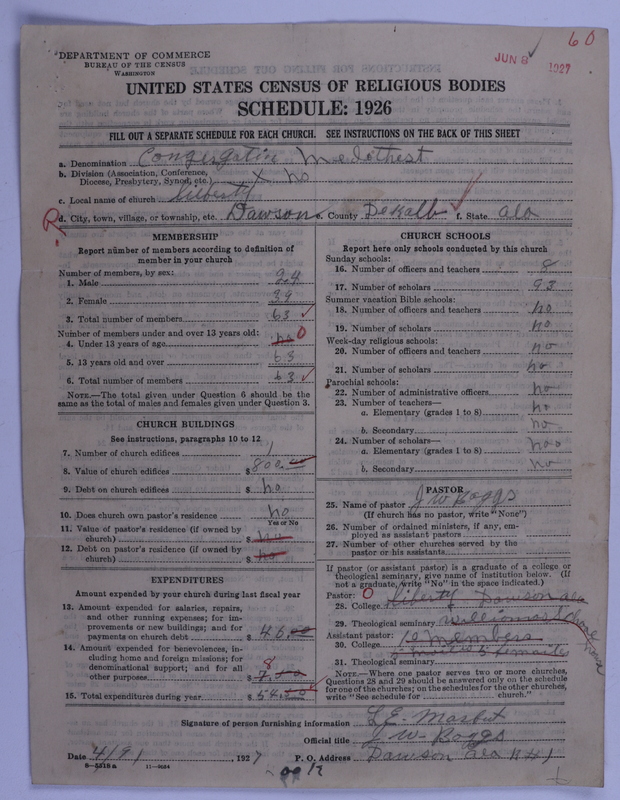 60
JUN 8 1927
DEPARTMENT OF COMMERCE
BUREAU OF THE CENSUS
WASHINGTON
UNITED STATES CENSUS OF RELIGIOUS BODIES
SCHEDULE: 1926
FILL OUT A SEPARATE SCHEDULE FOR EACH CHURCH. SEE INSTRUCTIONS ON THE BACK OF THIS SHEET
a. Denomination Congregation Medothest
b. Division (Association, Conference,
Diocese, Presbytery, Synod, etc.) x no
c. Local name of church Liberty
R d. City, town, village, or township, etc. Dawson e. County Dekalb f. State ala
MEMBERSHIP
Report number of members according to definition of
member in your church
Number of members, by sex:
1. Male 24
2. Female 39
3. Total number of members 63
Number of members under and over 13 years old:
4. Under 13 years of age no 0
5. 13 years old and over 63
6. Total number of members 63
NOTE.—The total given under Question 6 should be the
same as the total of males and females given under Question 3.
CHURCH BUILDINGS
See instructions, paragraphs 10 to 12
7. Number of church edifices 1
8. Value of church edifices $ 800.
9. Debt on church edifices $ no
10. Does church own pastor's residence no
Yes or No
11. Value of pastor's residence (if owned by
church) $ no
12. Debt on pastor's residence (if owned by
church) $ no
EXPENDITURES
Amount expended by your church during last fiscal year
13. Amount expended for salaries, repairs,
and other running expenses; for im-
provements or new buildings; and for
payments on church debt $ 46.00
14. Amount expended for benevolences, in-
cluding home and foreign missions; for
denominational support; and for all 8
other purposes $ 7.50
15. Total expenditures during year $ 54.
CHURCH SCHOOLS
Report here only schools conducted by this church
Sunday schools:
16. Number of officers and teachers 8
17. Number of scholars 93
Summer vacation Bible schools:
18. Number of officers and teachers no
19. Number of scholars no
Week-day religious schools:
20. Number of officers and teachers no
21. Number of scholars no
Parochial schools:
22. Number of administrative officers no
23. Number of teachers—
a. Elementary (grades 1 to 8) no
b. Secondary no
24. Number of scholars—
a. Elementary (grades 1 to 8) noo
b. Secondary no
PASTOR
25. Name of pastor J W Boggs
(If church has no pastor, write "None")
26. Number of ordained ministers, if any, em-
ployed as assistant pastors
27. Number of other churches served by the
pastor or his assistants
If pastor (or assistant pastor) is a graduate of a college or
theological seminary, give name of institution below. (If
not a graduate, write "No" in the space indicated.)
Pastor: 0
28. College Liberty Dawson ala
29. Theological seminary
Assistant pastor:
30. College members
31. Theological seminary
NOTE.—Where one pastor serves two or more churches,
Questions 28 and 29 should be answered only on the schedule
for one of the churches; on the schedules for the other churches,
write "See schedule for church."
Signature of person furnishing information L.E. Mashut
Official title J W Boggs
Date 4/9 1927 P. O. Address Dawson ala R#1
8-5318a 11-9664